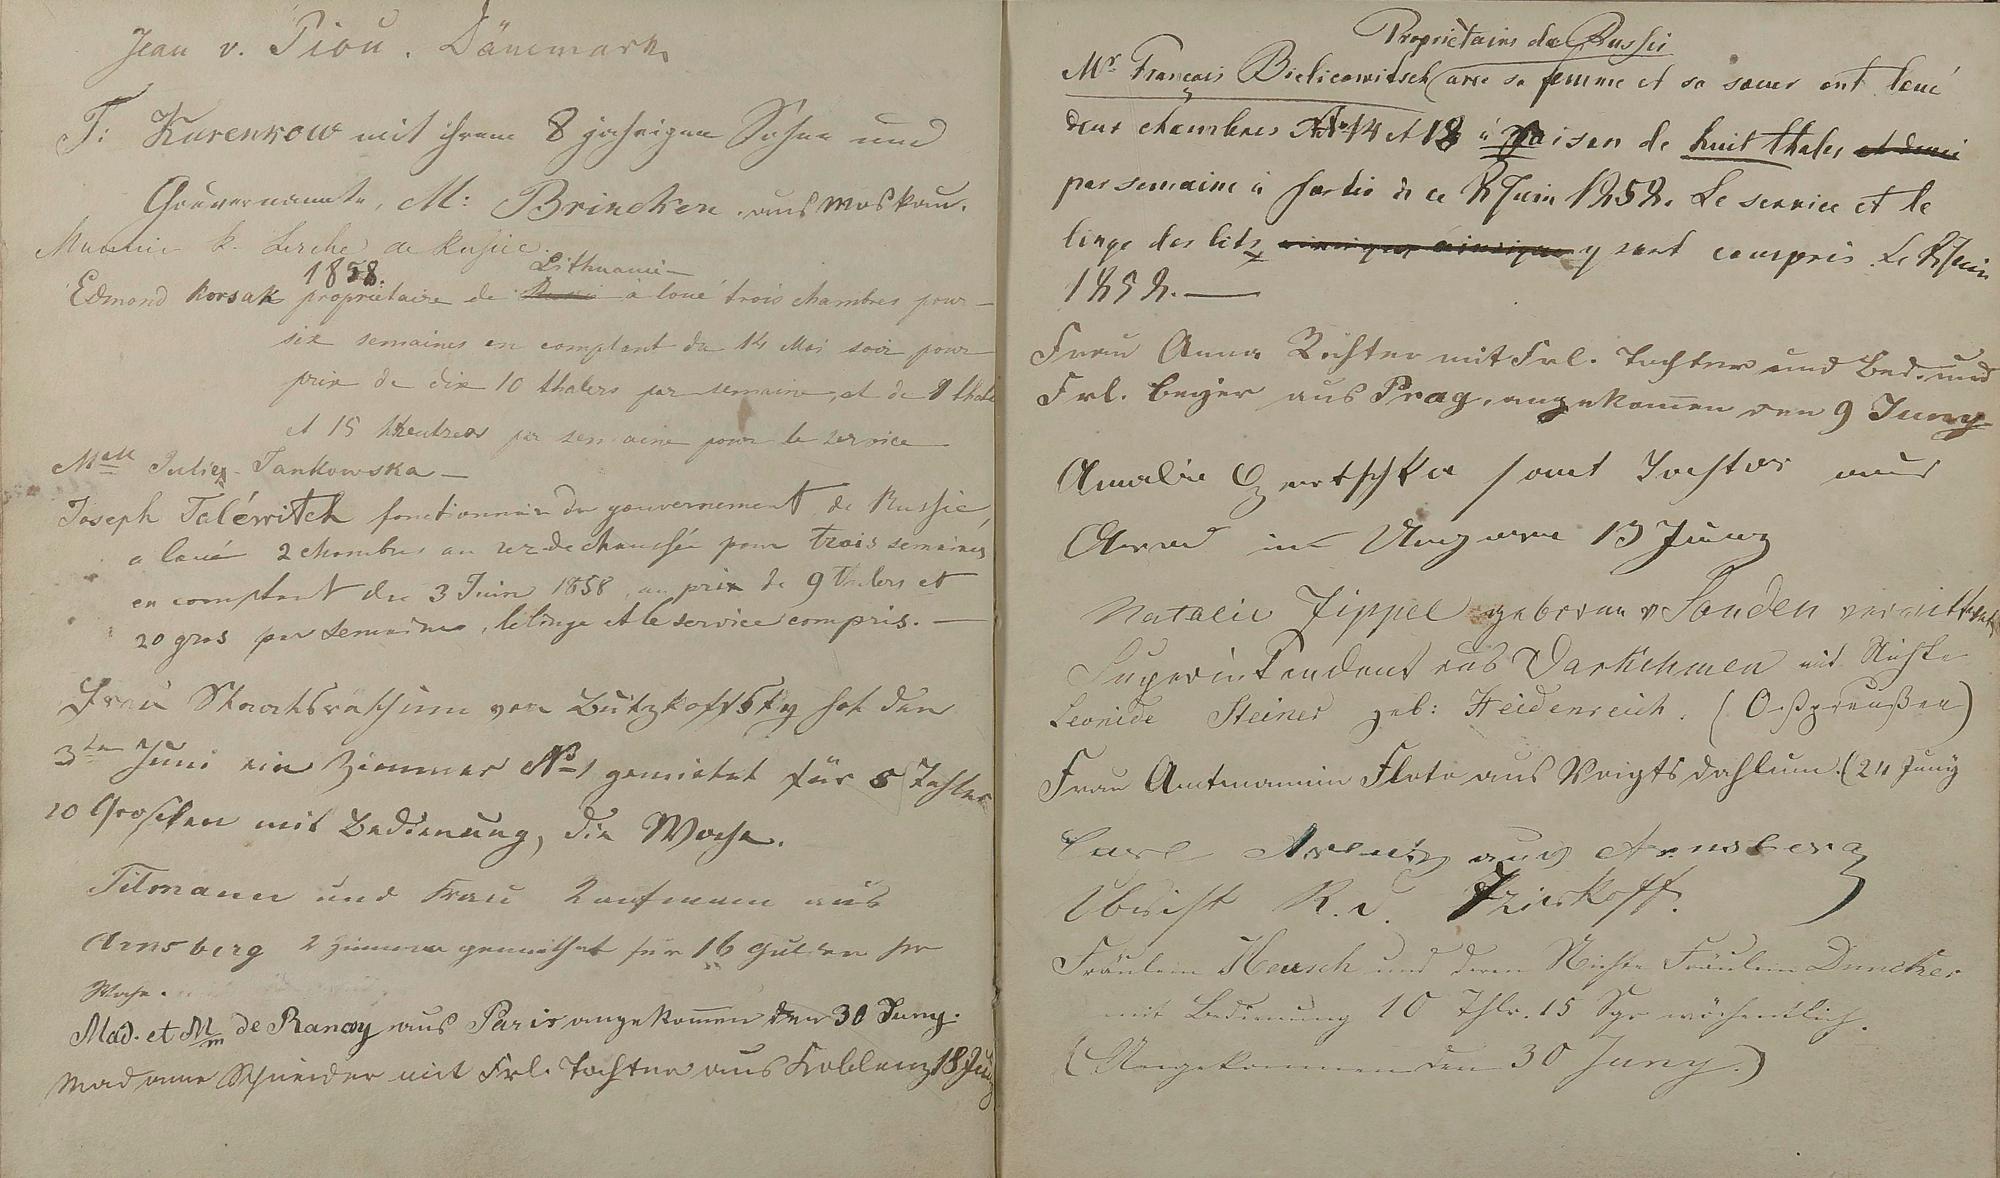 Jean v. Piou. Dänemark
T: Kurenkow mit ihrem 8 jährigen Sohne und
Gouvernante, M: Brincken. aus Moskau.
k. Lerche de Russie.
1858.
Lithuanie
Edmond Korsak propriétaire de Russie à loué trois chambres pour
six semaines en comptant du 14 Mai soir pour
prix de dix 10 thalers par semaine, et de 1 thal
et 15 par semaine pour le service
Mell Julie Jankowska
Joseph Taléwitch fonctionnaire du gouvernement de Russie,
a loué 2 chambres au rez-de chaussée pour trois semaines
en comptant du 3 Juin 1858, au prix de 9 thalers et
20 gros par semaine, le linge et le service compris.
Frau Staatsräthinn von Butzkoffsky hat den
3ten Juni ein Zimmer No 1 gemietet für 5 Thaler
10 Groschen mit Bedienung, die Woche.
Tilmann und Frau Kaufmann aus
Arnsberg 2 Zimmer gemiethet für 16 Gulden pr
Woche.
Mad. et M de Ranay aus Paris angekom̄en den 30 Juny.
Madame Schneider mit Frl. Tochter aus Koblenz 18 Juny
Propriétaire de Russie
Mr François Bielicowitsch (avec sa femme et sa soeur ont loué
deux chambres No 14 et 18 à raison de huit thaler et demi
par semaine à partir de ce 8 Juin 1858. Le service et le
linge des lits y sont compris. Le 8 Juin
1858.
Frau Anna Richter mit Frl. Tochter und Bed. und
Frl. Beyer aus Prag, angekom̄en den 9 Juny
Amalie samt Tochter aus
Arad in Ungarn 13 Juny
Natalie Zippel geborene v Sanden
Superintendent aus Darkehmen mit Nichte
Leonide Steiner geb: Heidenreich. (Ostpreußen)
Frau Amtmannin Floto aus Voigtsdahlum. (24 Juny
Carl Arentz aus Arnsberg
R. v.
Fräulein Heusch und deren Nichte Fräulein Duncker
mit Bedienung 10 Thlr. 15 Sgr wöchentlich.
(Angekommen den 30 Juny.)